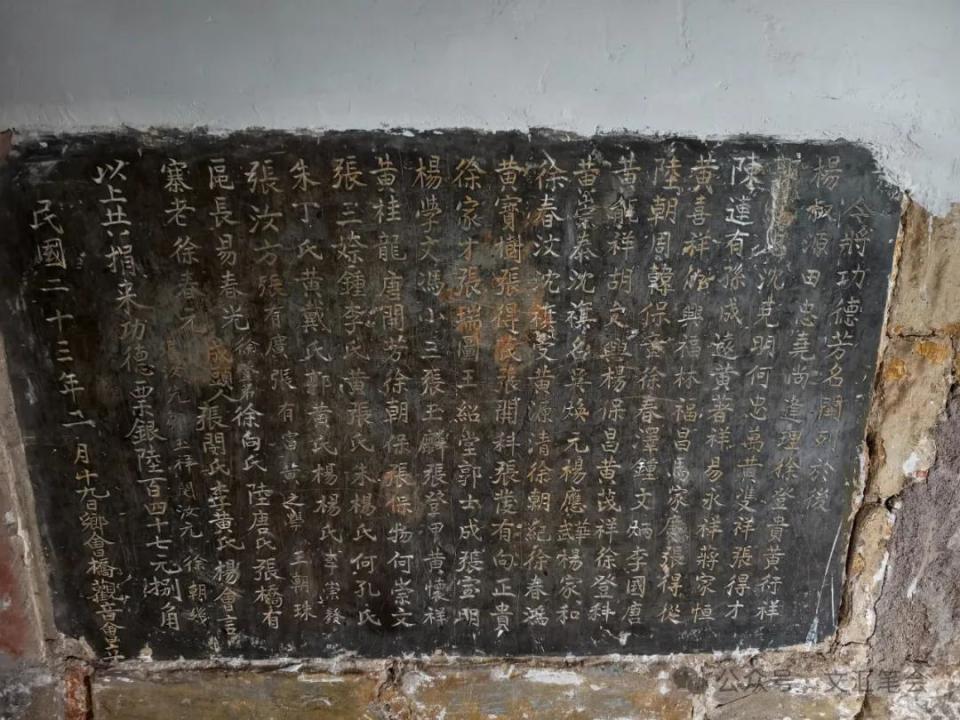 今將功德芳名開列於後
楊淑源 田忠堯 尚達理 徐登貴 黃衍祥
沈克明 何忠萬 黃雙祥 張得才
陳連有 孫成遠 黃著祥 易永祥 蔣家恒
黃喜祥 興福 林福昌 馮家應 張得從
陸朝周 韓保 徐春澤 鍾文炳 李國唐
黃能祥 胡文興 楊保昌 黃茂祥 徐登科
黃崇泰 沈旗名 吳煥元 楊應武 楊家和
徐春汶 沈 黃源清 徐朝紀 徐春鴻
黃寶樹 張得 張開科 張發有 向正貴
徐家才 張瑞圖 王紹堂 郭士成 張宝明
楊學文 馮小三 張玉麟 張登甲 黃懷祥
黃桂龍 唐開芳 徐朝保 張保 何崇文
張三 鍾李氏 黃張氏 朱楊氏 何孔氏
朱丁氏 黃戴氏 鄭黃氏 楊楊氏 李崇發
張汝方 張有廣 張有富 黃之 王朝珠
徐向氏 陸唐氏 張橋有
區長易春光 張閔氏 李黃氏 楊會言
寨老徐春元 玉祥 閔汝元 徐朝
以上共捐來功德票銀陸百四十七元捌角
民國二十三年二月十九日鄉會橋觀音會立